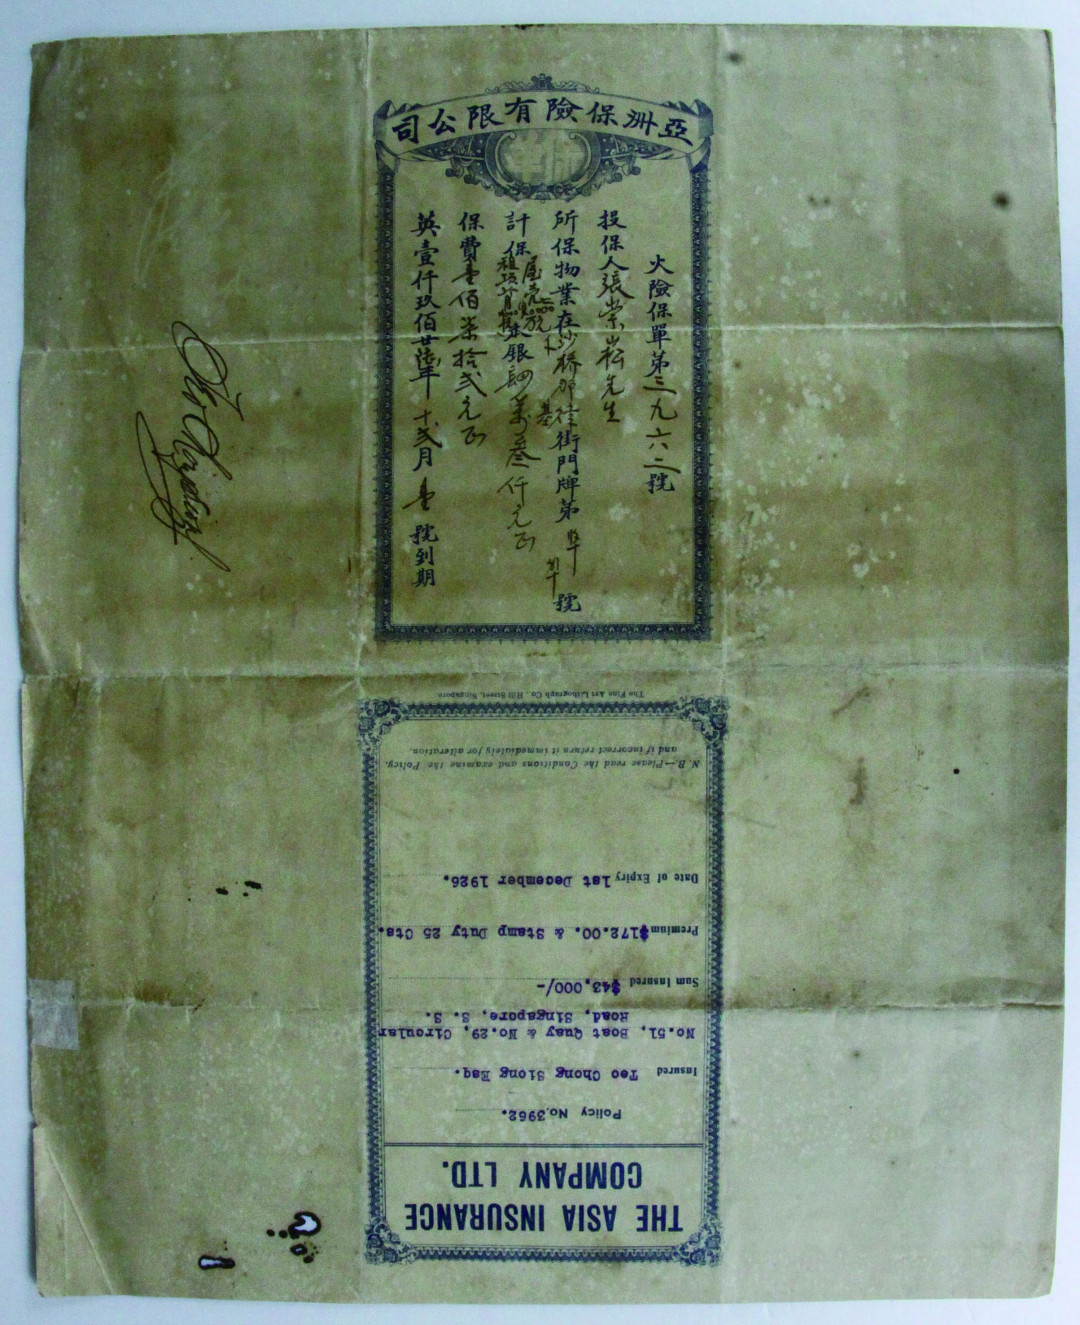 亞洲保險有限公司
火險保單第三九六二號
投保人張崇崧先生
所保物業在沙橋 街門牌第 號
計保 銀四萬叁仟元正
保費壹佰柒拾弍元正
英壹仟玖佰廿陸年十弍月壹號到期
THE ASIA INSURANCE
COMPANY LTD.
Policy No. 3962.
Insured Teo Chong Siong Esq.
No.51, Boat Quay & No.29, Circular
Road, Singapore, S. S.
Sum Insured $43,000/-
Premium $172.00. & Stamp Duty 25 Cts.
Date of Expiry 1st December 1926.
N.B.—Please read the Conditions and examine the Policy,
and if incorrect return it immediately for alteration.
The Fine Art Lithograph Co., Hill Street, Singapore